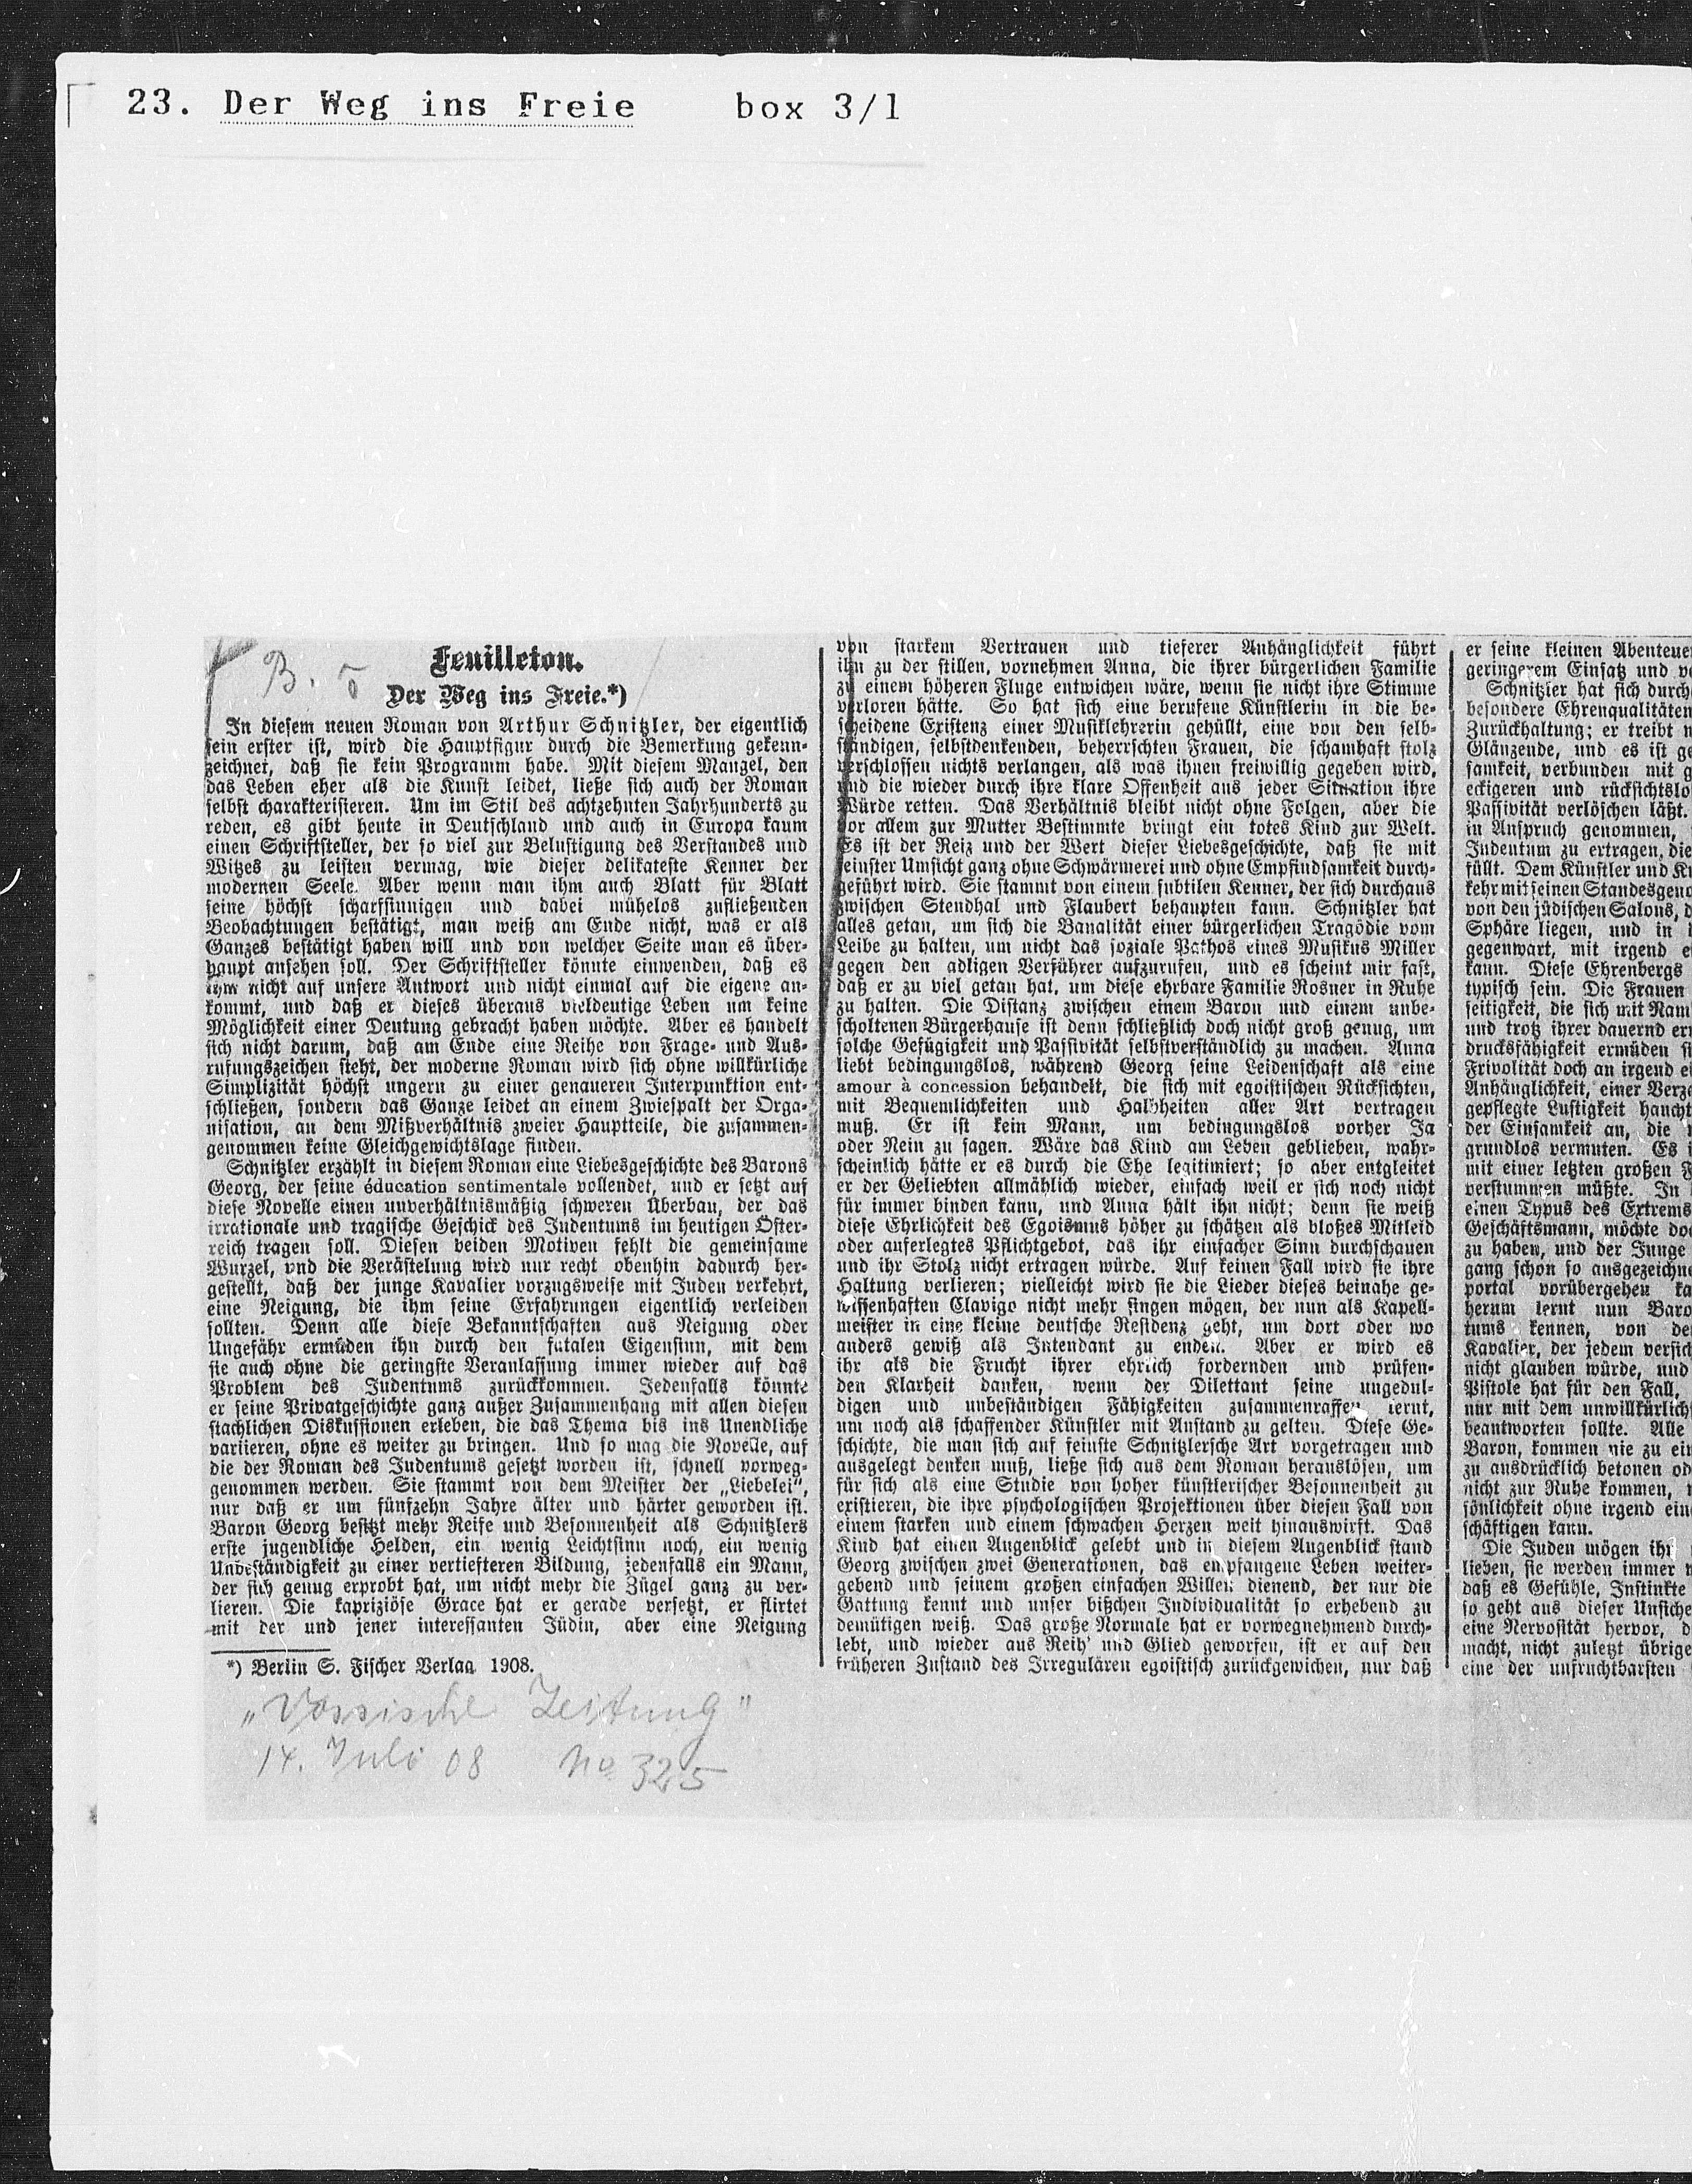 23. Der Weg ins Freie box 3/1
B. 5
Feuilleton.
Der Weg ins Freie.*)
In diesem neuen Roman von Arthur Schnitzler, der eigentlich
sein erster ist, wird die Hauptfigur durch die Bemerkung gekenn-
zeichnet, daß sie kein Programm habe. Mit diesem Mangel, den
das Leben eher als die Kunst leidet, ließe sich auch der Roman
selbst charakterisieren. Um im Stil des achtzehnten Jahrhunderts zu
reden, es gibt heute in Deutschland und auch in Europa kaum
einen Schriftsteller, der so viel zur Belustigung des Verstandes und
Witzes zu leisten vermag, wie dieser delikateste Kenner der
modernen Seele. Aber wenn man ihm auch Blatt für Blatt
seine höchst scharfsinnigen und dabei mühelos zufließenden
Beobachtungen bestätigt, man weiß am Ende nicht, was er als
Ganzes bestätigt haben will und von welcher Seite man es über-
haupt ansehen soll. Der Schriftsteller könnte einwenden, daß es
ihm nicht auf unsere Antwort und nicht einmal auf die eigene an-
kommt, und daß er dieses überaus vieldeutige Leben um keine
Möglichkeit einer Deutung gebracht haben möchte. Aber es handelt
sich nicht darum, daß am Ende eine Reihe von Frage- und Aus-
rufungszeichen steht, der moderne Roman wird sich ohne willkürliche
Simplizität höchst ungern zu einer genaueren Interpunktion ent-
schließen, sondern das Ganze leidet an einem Zwiespalt der Orga-
nisation, an dem Mißverhältnis zweier Hauptteile, die zusammen-
genommen keine Gleichgewichtslage finden.
Schnitzler erzählt in diesem Roman eine Liebesgeschichte des Barons
Georg, der seine éducation sentimentale vollendet, und er setzt auf
diese Novelle einen unverhältnismäßig schweren Überbau, der das
irrationale und tragische Geschick des Judentums im heutigen Öster-
reich tragen soll. Diesen beiden Motiven fehlt die gemeinsame
Wurzel, und die Verästelung wird nur recht obenhin dadurch her-
gestellt, daß der junge Kavalier vorzugsweise mit Juden verkehrt,
eine Neigung, die ihm seine Erfahrungen eigentlich verleiden
sollten. Denn alle diese Bekanntschaften aus Neigung oder
Ungefähr ermüden ihn durch den fatalen Eigensinn, mit dem
sie auch ohne die geringste Veranlassung immer wieder auf das
Problem des Judentums zurückkommen. Jedenfalls könnte
er seine Privatgeschichte ganz außer Zusammenhang mit allen diesen
stachlichen Diskussionen erleben, die das Thema bis ins Unendliche
variieren, ohne es weiter zu bringen. Und so mag die Novelle, auf
die der Roman des Judentums gesetzt worden ist, schnell vorweg-
genommen werden. Sie stammt von dem Meister der „Liebelei“,
nur daß er um fünfzehn Jahre älter und härter geworden ist.
Baron Georg besitzt mehr Reife und Besonnenheit als Schnitzlers
erste jugendliche Helden, ein wenig Leichtsinn noch, ein wenig
Unbeständigkeit zu einer vertiefteren Bildung, jedenfalls ein Mann,
der sich genug erprobt hat, um nicht mehr die Zügel ganz zu ver-
lieren. Die kapriziöse Grace hat er gerade versetzt, er flirtet
mit der und jener interessanten Jüdin, aber eine Neigung
*) Berlin S. Fischer Verlag 1908.
„Vossische Zeitung“
14. Juli 08 No 325
von starkem Vertrauen und tieferer Anhänglichkeit führt
ihn zu der stillen, vornehmen Anna, die ihrer bürgerlichen Familie
zu einem höheren Fluge entwichen wäre, wenn sie nicht ihre Stimme
verloren hätte. So hat sich eine berufene Künstlerin in die be-
scheidene Existenz einer Musiklehrerin gehüllt, eine von den selb-
ständigen, selbstdenkenden, beherrschten Frauen, die schamhaft stolz
verschlossen nichts verlangen, als was ihnen freiwillig gegeben wird,
und die wieder durch ihre klare Offenheit aus jeder Situation ihre
Würde retten. Das Verhältnis bleibt nicht ohne Folgen, aber die
vor allem zur Mutter Bestimmte bringt ein totes Kind zur Welt.
Es ist der Reiz und der Wert dieser Liebesgeschichte, daß sie mit
feinster Umsicht ganz ohne Schwärmerei und ohne Empfindsamkeit durch-
geführt wird. Sie stammt von einem subtilen Kenner, der sich durchaus
zwischen Stendhal und Flaubert behaupten kann. Schnitzler hat
alles getan, um sich die Banalität einer bürgerlichen Tragödie vom
Leibe zu halten, um nicht das soziale Pathos eines Musikus Miller
gegen den adligen Verführer aufzurufen, und es scheint mir fast,
daß er zu viel getan hat, um diese ehrbare Familie Rosner in Ruhe
zu halten. Die Distanz zwischen einem Baron und einem unbe-
scholtenen Bürgerhause ist denn schließlich doch nicht groß genug, um
solche Gefügigkeit und Passivität selbstverständlich zu machen. Anna
liebt bedingungslos, während Georg seine Leidenschaft als eine
amour à concession behandelt, die sich mit egoistischen Rücksichten,
mit Bequemlichkeiten und Halbheiten aller Art vertragen
muß. Er ist kein Mann, um bedingungslos vorher Ja
oder Nein zu sagen. Wäre das Kind am Leben geblieben, wahr-
scheinlich hätte er es durch die Ehe legitimiert; so aber entgleitet
er der Geliebten allmählich wieder, einfach weil er sich noch nicht
für immer binden kann, und Anna hält ihn nicht; denn sie weiß
diese Ehrlichkeit des Egoismus höher zu schätzen als bloßes Mitleid
oder auferlegtes Pflichtgebot, das ihr einfacher Sinn durchschauen
und ihr Stolz nicht ertragen würde. Auf keinen Fall wird sie ihre
Haltung verlieren; vielleicht wird sie die Lieder dieses beinahe ge-
wissenhaften Clavigo nicht mehr singen mögen, der nun als Kapell-
meister in eine kleine deutsche Residenz geht, um dort oder wo
anders gewiß als Intendant zu enden. Aber er wird es
ihr als die Frucht ihrer ehrlich fordernden und prüfen-
den Klarheit danken, wenn der Dilettant seine ungedul-
digen und unbeständigen Fähigkeiten zusammenraffen lernt,
um noch als schaffender Künstler mit Anstand zu gelten. Diese Ge-
schichte, die man sich auf feinste Schnitzlersche Art vorgetragen und
ausgelegt denken muß, ließe sich aus dem Roman herauslösen, um
für sich als eine Studie von hoher künstlerischer Besonnenheit zu
existieren, die ihre psychologischen Projektionen über diesen Fall von
einem starken und einem schwachen Herzen weit hinauswirft. Das
Kind hat einen Augenblick gelebt und in diesem Augenblick stand
Georg zwischen zwei Generationen, das empfangene Leben weiter-
gebend und seinem großen einfachen Willen dienend, der nur die
Gattung kennt und unser bißchen Individualität so erhebend zu
demütigen weiß. Das große Normale hat er vorwegnehmend durch-
lebt, und wieder aus Reih' und Glied geworfen, ist er auf den
früheren Zustand des Irregulären egoistisch zurückgewichen, nur daß
er seine kleinen Abenteue
geringerem Einsatz und v
Schnitzler hat sich durch
besondere Ehrenqualitäten
Zurückhaltung; er treibt
Glänzende, und es ist ge
samkeit, verbunden mit g
eckigeren und rücksichtslo
Passivität verlöschen läßt.
in Anspruch genommen,
Judentum zu ertragen, die
füllt. Dem Künstler und K
kehr mit seinen Standesgeno
von den jüdischen Salons, d
Sphäre liegen, und in
gegenwart, mit irgend e
kann. Diese Ehrenbergs
typisch sein. Die Frauen
seitigkeit, die sich mit Ram
und trotz ihrer dauernd er
drucksfähigkeit ermüden si
Frivolität doch an irgend ei
Anhänglichkeit, einer Verz
gepflegte Lustigkeit haucht
der Einsamkeit an, die
grundlos vermuten. Es i
mit einer letzten großen F
verstummen müßte. In
einen Typus des Extrems
Geschäftsmann, möchte doc
zu haben, und der Junge
gang schon so ausgezeichne
portal vorübergehen ka
herum lernt nun Baro
tums kennen, von de
Kavalier, der jedem versich
nicht glauben würde, und
Pistole hat für den Fall,
nur mit dem unwillkürlich
beantworten sollte. Alle
Baron, kommen nie zu ein
zu ausdrücklich betonen od
nicht zur Ruhe kommen,
sönlichkeit ohne irgend ein
schäftigen kann.
Die Juden mögen ihr
lieben, sie werden immer
daß es Gefühle, Instinkte
so geht aus dieser Unsiche
eine Nervosität hervor, d
macht, nicht zuletzt übrige
eine der unfruchtbarsten